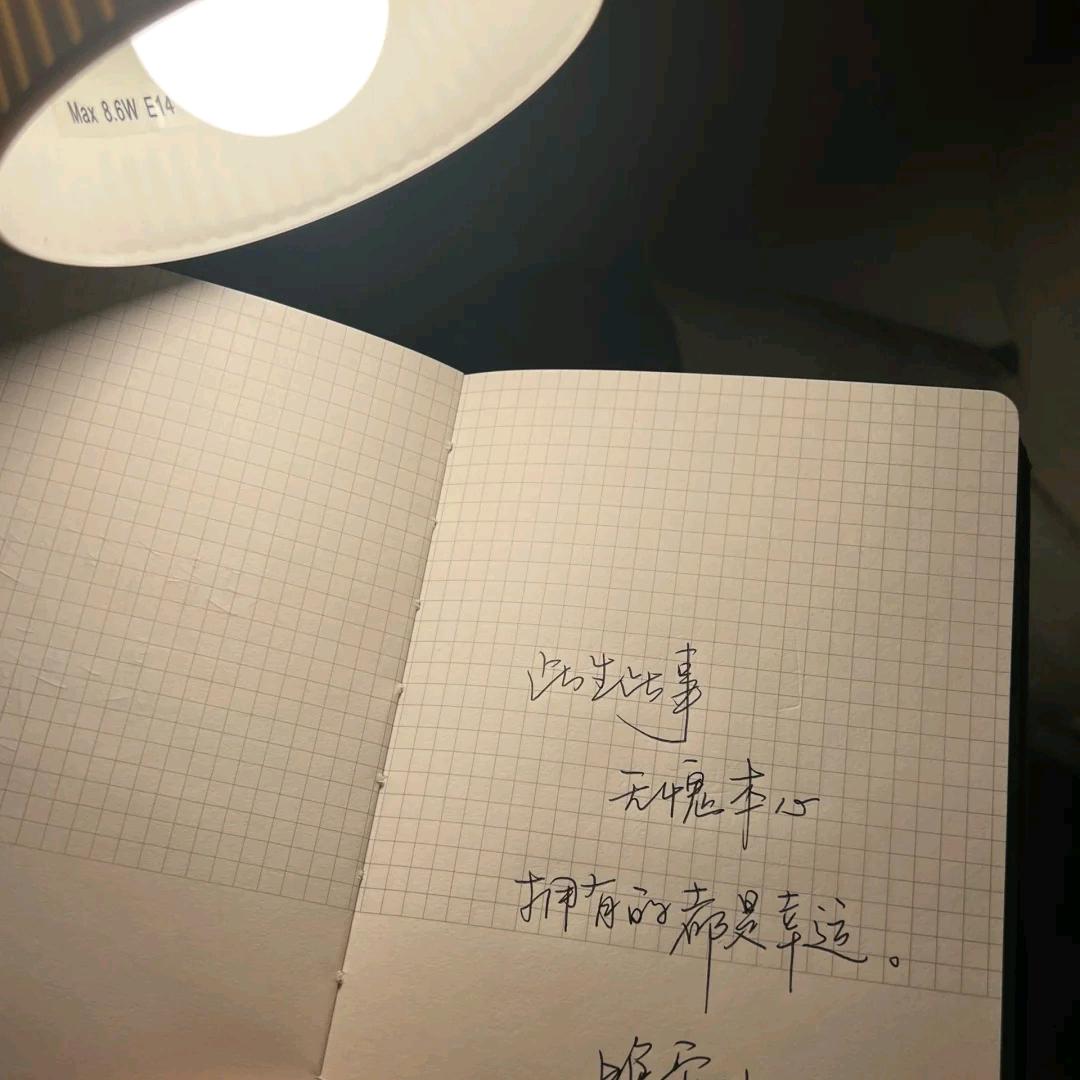 Max 8.6W E14
此生此事
无愧本心
拥有的都是幸运。